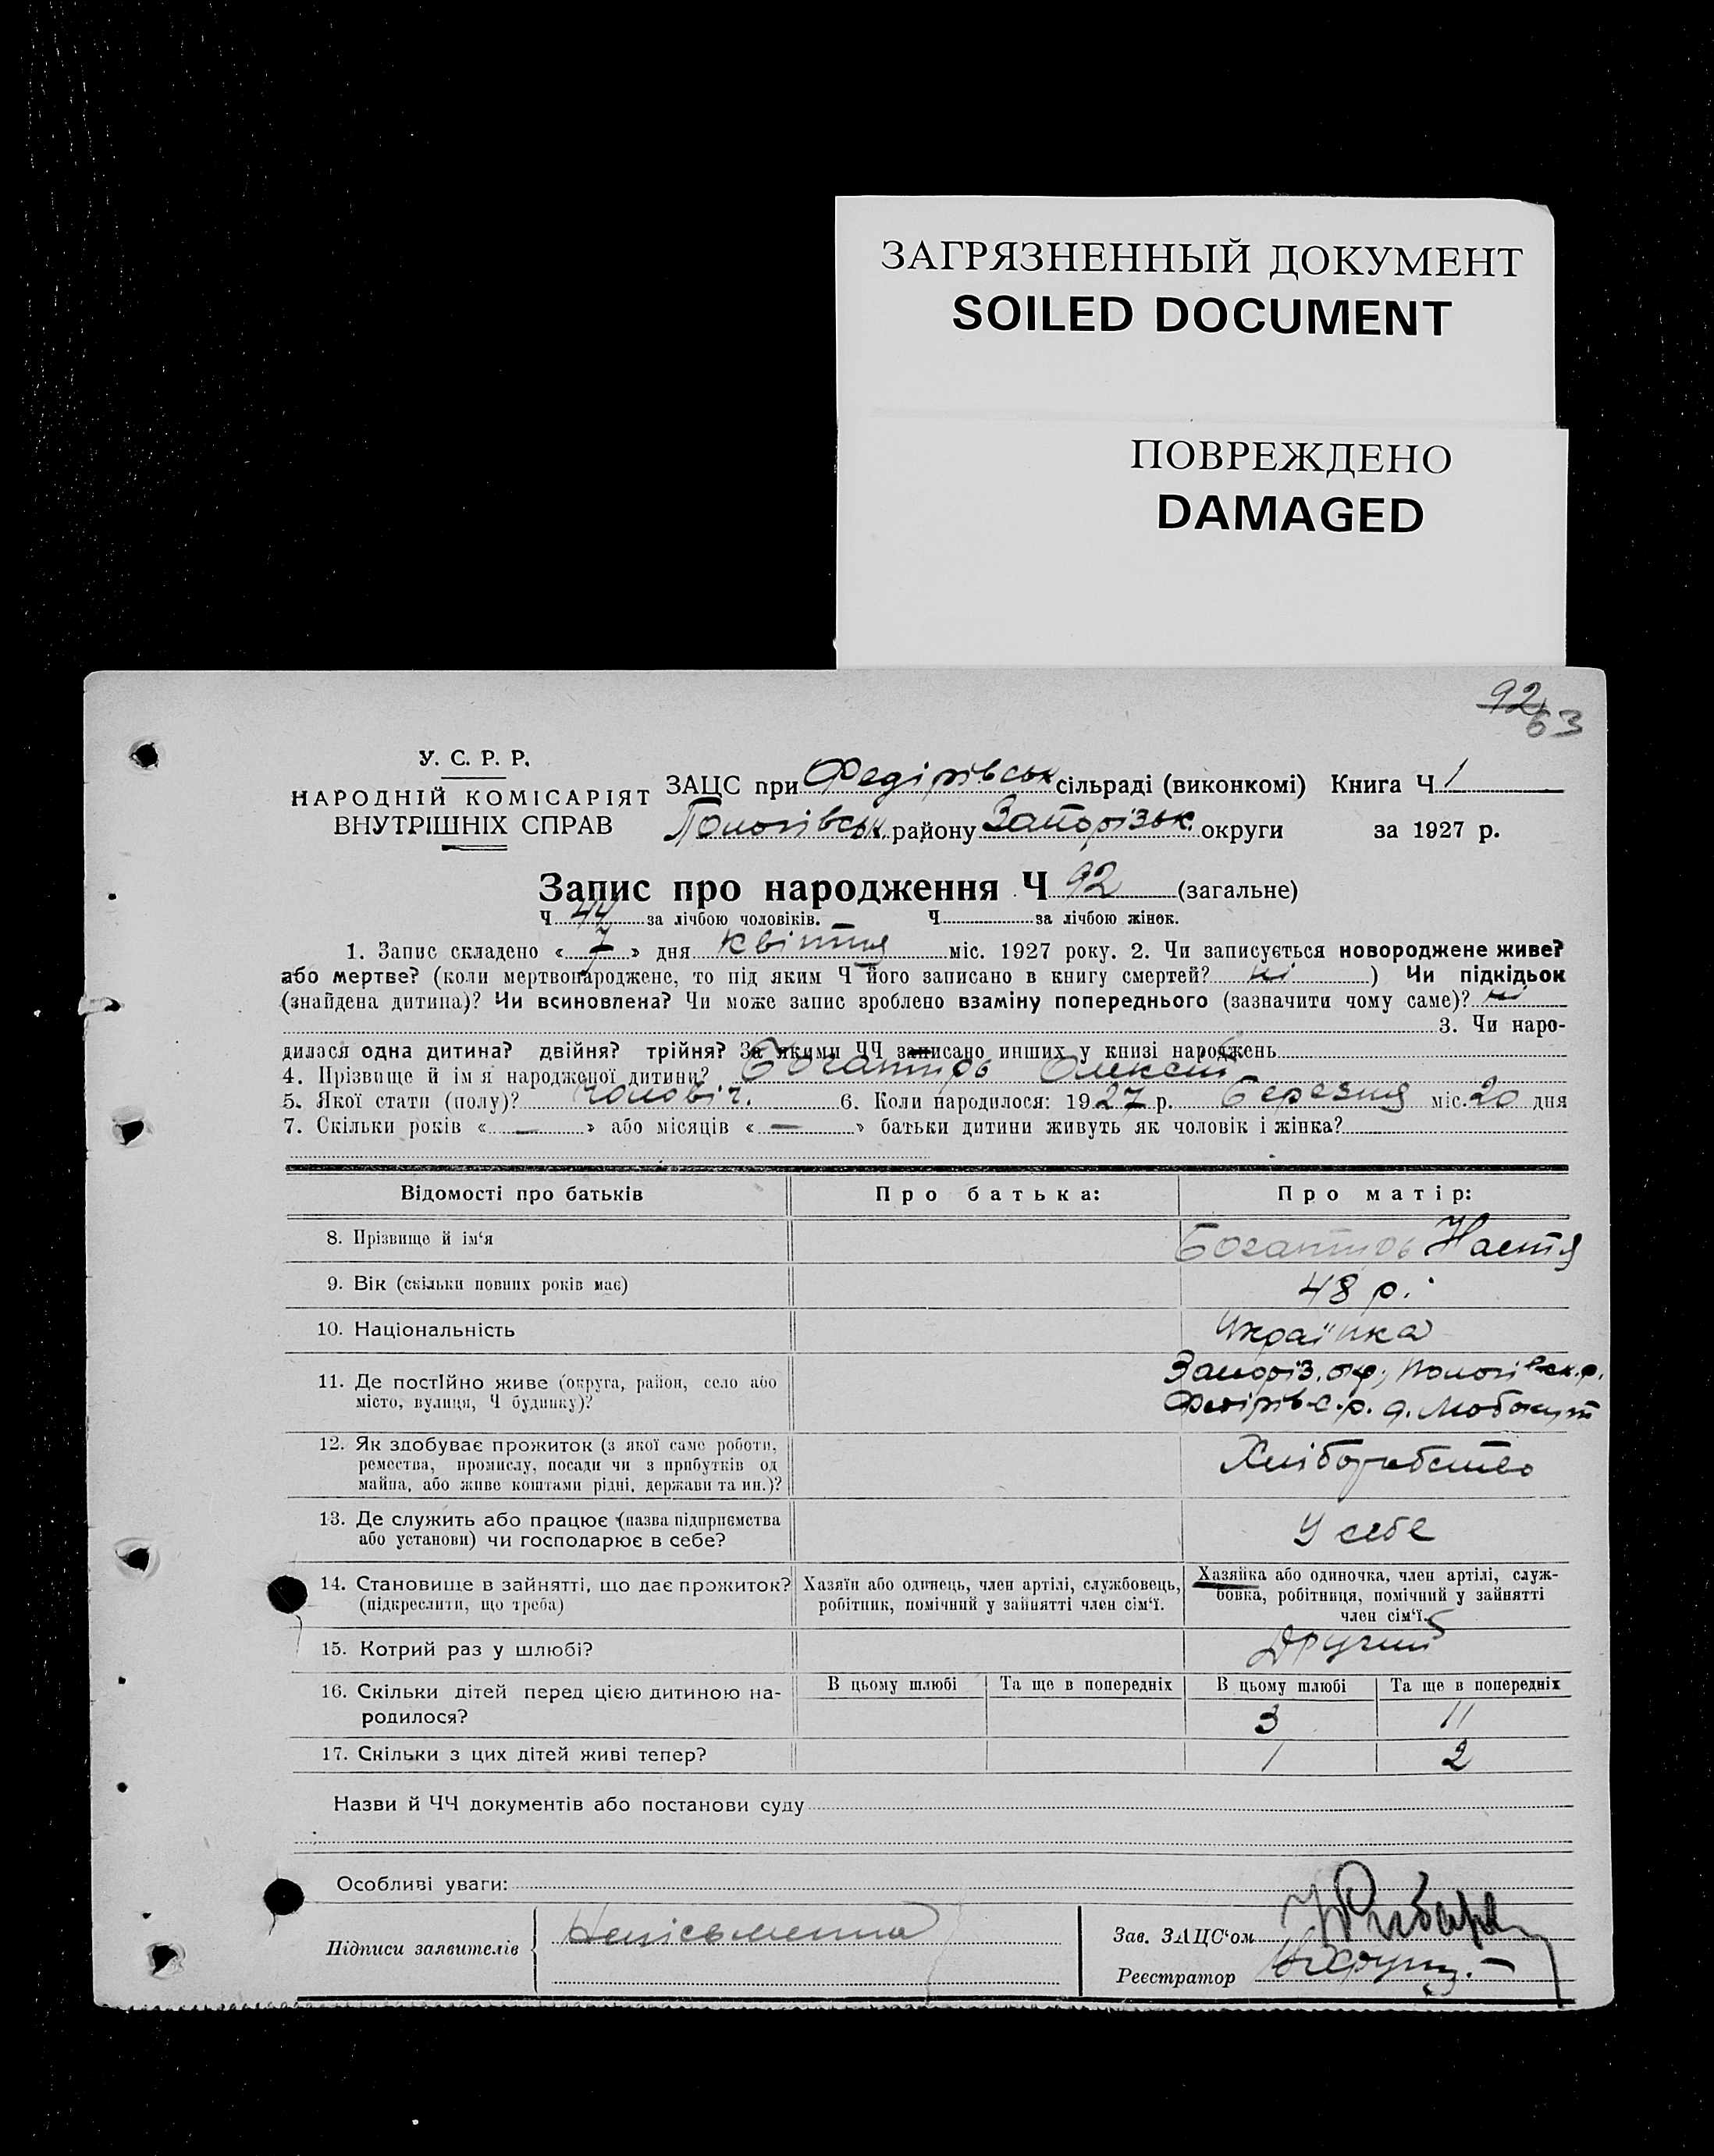 ЗАГРЯЗНЕННЫЙ ДОКУМЕНТ
SOILED DOCUMENT
ПОВРЕЖДЕНО
DAMAGED
92
63
У. С. Р. Р.
НАРОДНІЙ КОМІСАРІЯТ
ВНУТРІШНІХ СПРАВ
ЗАЦС при Федірівськ сільраді (виконкомі) Книга Ч 1
Пологівськ. району Запорізьк. округи за 1927 р.
Запис про народження Ч 92 (загальне)
Ч 44 за лічбою чоловіків. — Ч за лічбою жінок.
1. Запис складено « 7 » дня квітня міс. 1927 року. 2. Чи записується новороджене живе?
або мертве? (коли мертвонароджене, то під яким Ч його записано в книгу смертей? ні ) Чи підкідьок
(знайдена дитина)? Чи всиновлена? Чи може запис зроблено взаміну попереднього (зазначити чому саме)? ні
3. Чи наро-
дилася одна дитина? двійня? трійня? За якими ЧЧ записано инших у книзі народжень
4. Прізвище й ім'я народженої дитини? Богатирь Олексій
5. Якої стати (полу)? Чоловіч. 6. Коли народилося: 1927 р. Березня міс. 20 дня
7. Скільки років « — » або місяців « — » батьки дитини живуть як чоловік і жінка?
Відомості про батьків Про батька: Про матір:
8. Прізвище й ім'я Богатирь Настя
9. Вік (скільки повних років має) 48 р.
10. Національність Українка
11. Де постійно живе (округа, район, село або Запоріз. окр., Пологівск. р.
місто, вулиця, Ч будинку)? Федірів. с. р.
12. Як здобуває прожиток (з якої саме роботи,
ремества, промислу, посади чи з прибутків од Хліборобство
майна, або живе коштами рідні, держави та ин.)?
13. Де служить або працює (назва підприємства У себе
або установи) чи господарює в себе?
14. Становище в зайнятті, що дає прожиток? Хазяїн або одинець, член артілі, службовець, Хазяйка або одиночка, член артілі, служ-
(підкреслити, що треба) робітник, помічний у зайнятті член сім'ї. бовка, робітниця, помічний у зайнятті
член сім'ї.
15. Котрий раз у шлюбі? Другий
16. Скільки дітей перед цією дитиною на- В цьому шлюбі Та ще в попередніх В цьому шлюбі Та ще в попередніх
родилося? 3 11
17. Скільки з цих дітей живі тепер? 1 2
Назви й ЧЧ документів або постанови суду
Особливі уваги:
Підписи заявителів Неписьменна
Зав. ЗАЦС'ом
Реєстратор